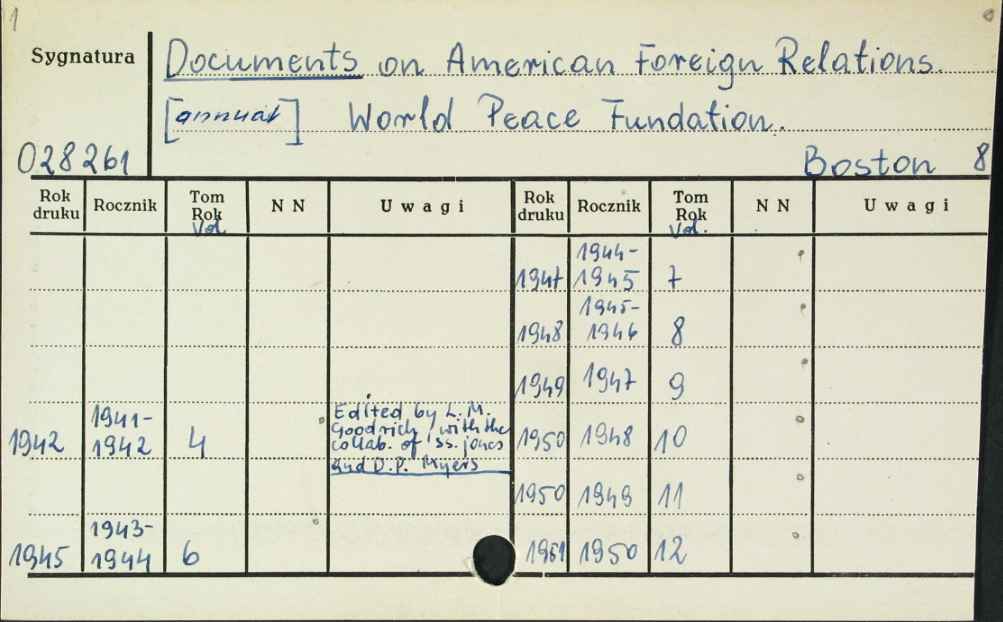 1
Sygnatura
Documents on American Foreign Relations.
[annual] World Peace Fundation.
028261
Boston 8
Rok druku Rocznik Tom Rok Vol. N N Uwagi Rok druku Rocznik Tom Rok Vol. N N Uwagi
1947 1944-1945 7
1948 1945-1946 8
1949 1947 9
1942 1941-1942 4 Edited by L. M. Goodrich, with the collab. of ss. jones and D.P. Myers 1950 1948 10
1950 1949 11
1945 1943-1944 6 1951 1950 12